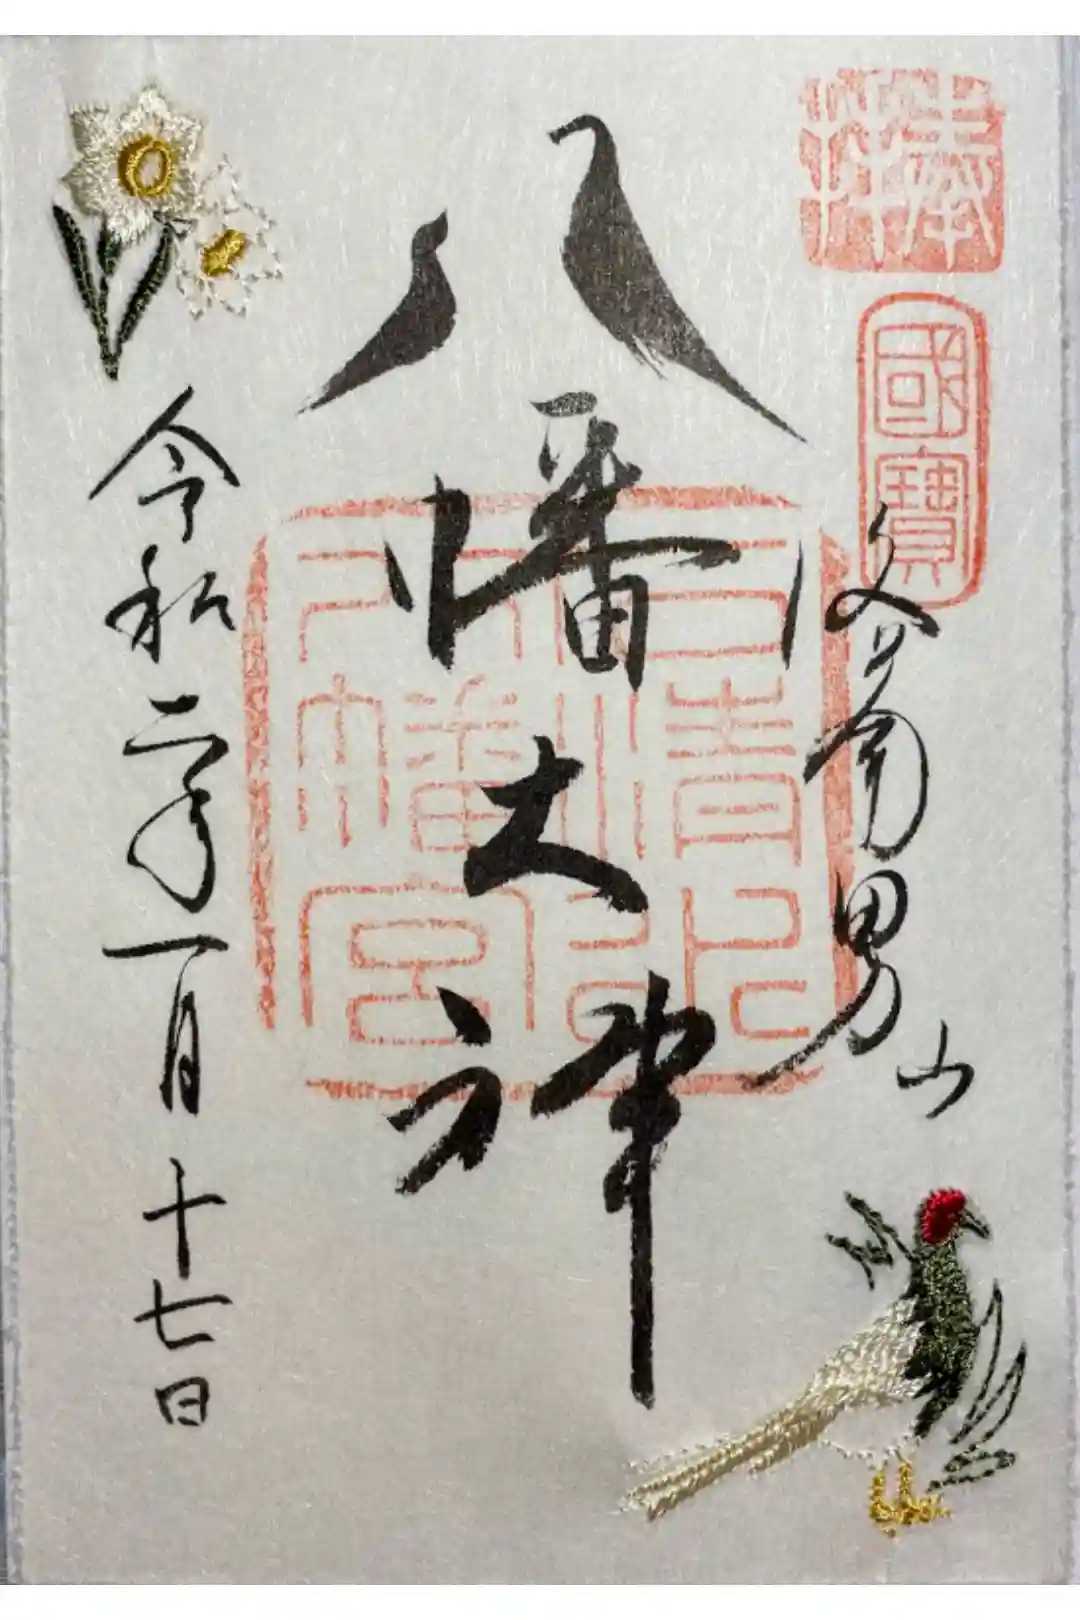 奉拝
國寶
洛南男山
八幡大神
石清水八幡宮印
令和二年一月十七日